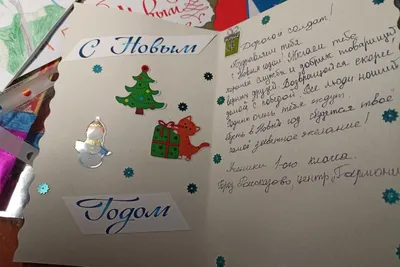 С Новым
Годом
Дорогой солдат!
Поздравляем тебя
с Новым годом! Желаем тебе
хорошей службы и добрых товарищей,
верных друзей. Возвращайся скорее
домой с победой. Все люди нашей
Родины очень тебя ждут.
Пусть в Новый год сбудется твоё
самое заветное желание!
Ученики 1-ого класса.
Город Рассказово центр „Гармония